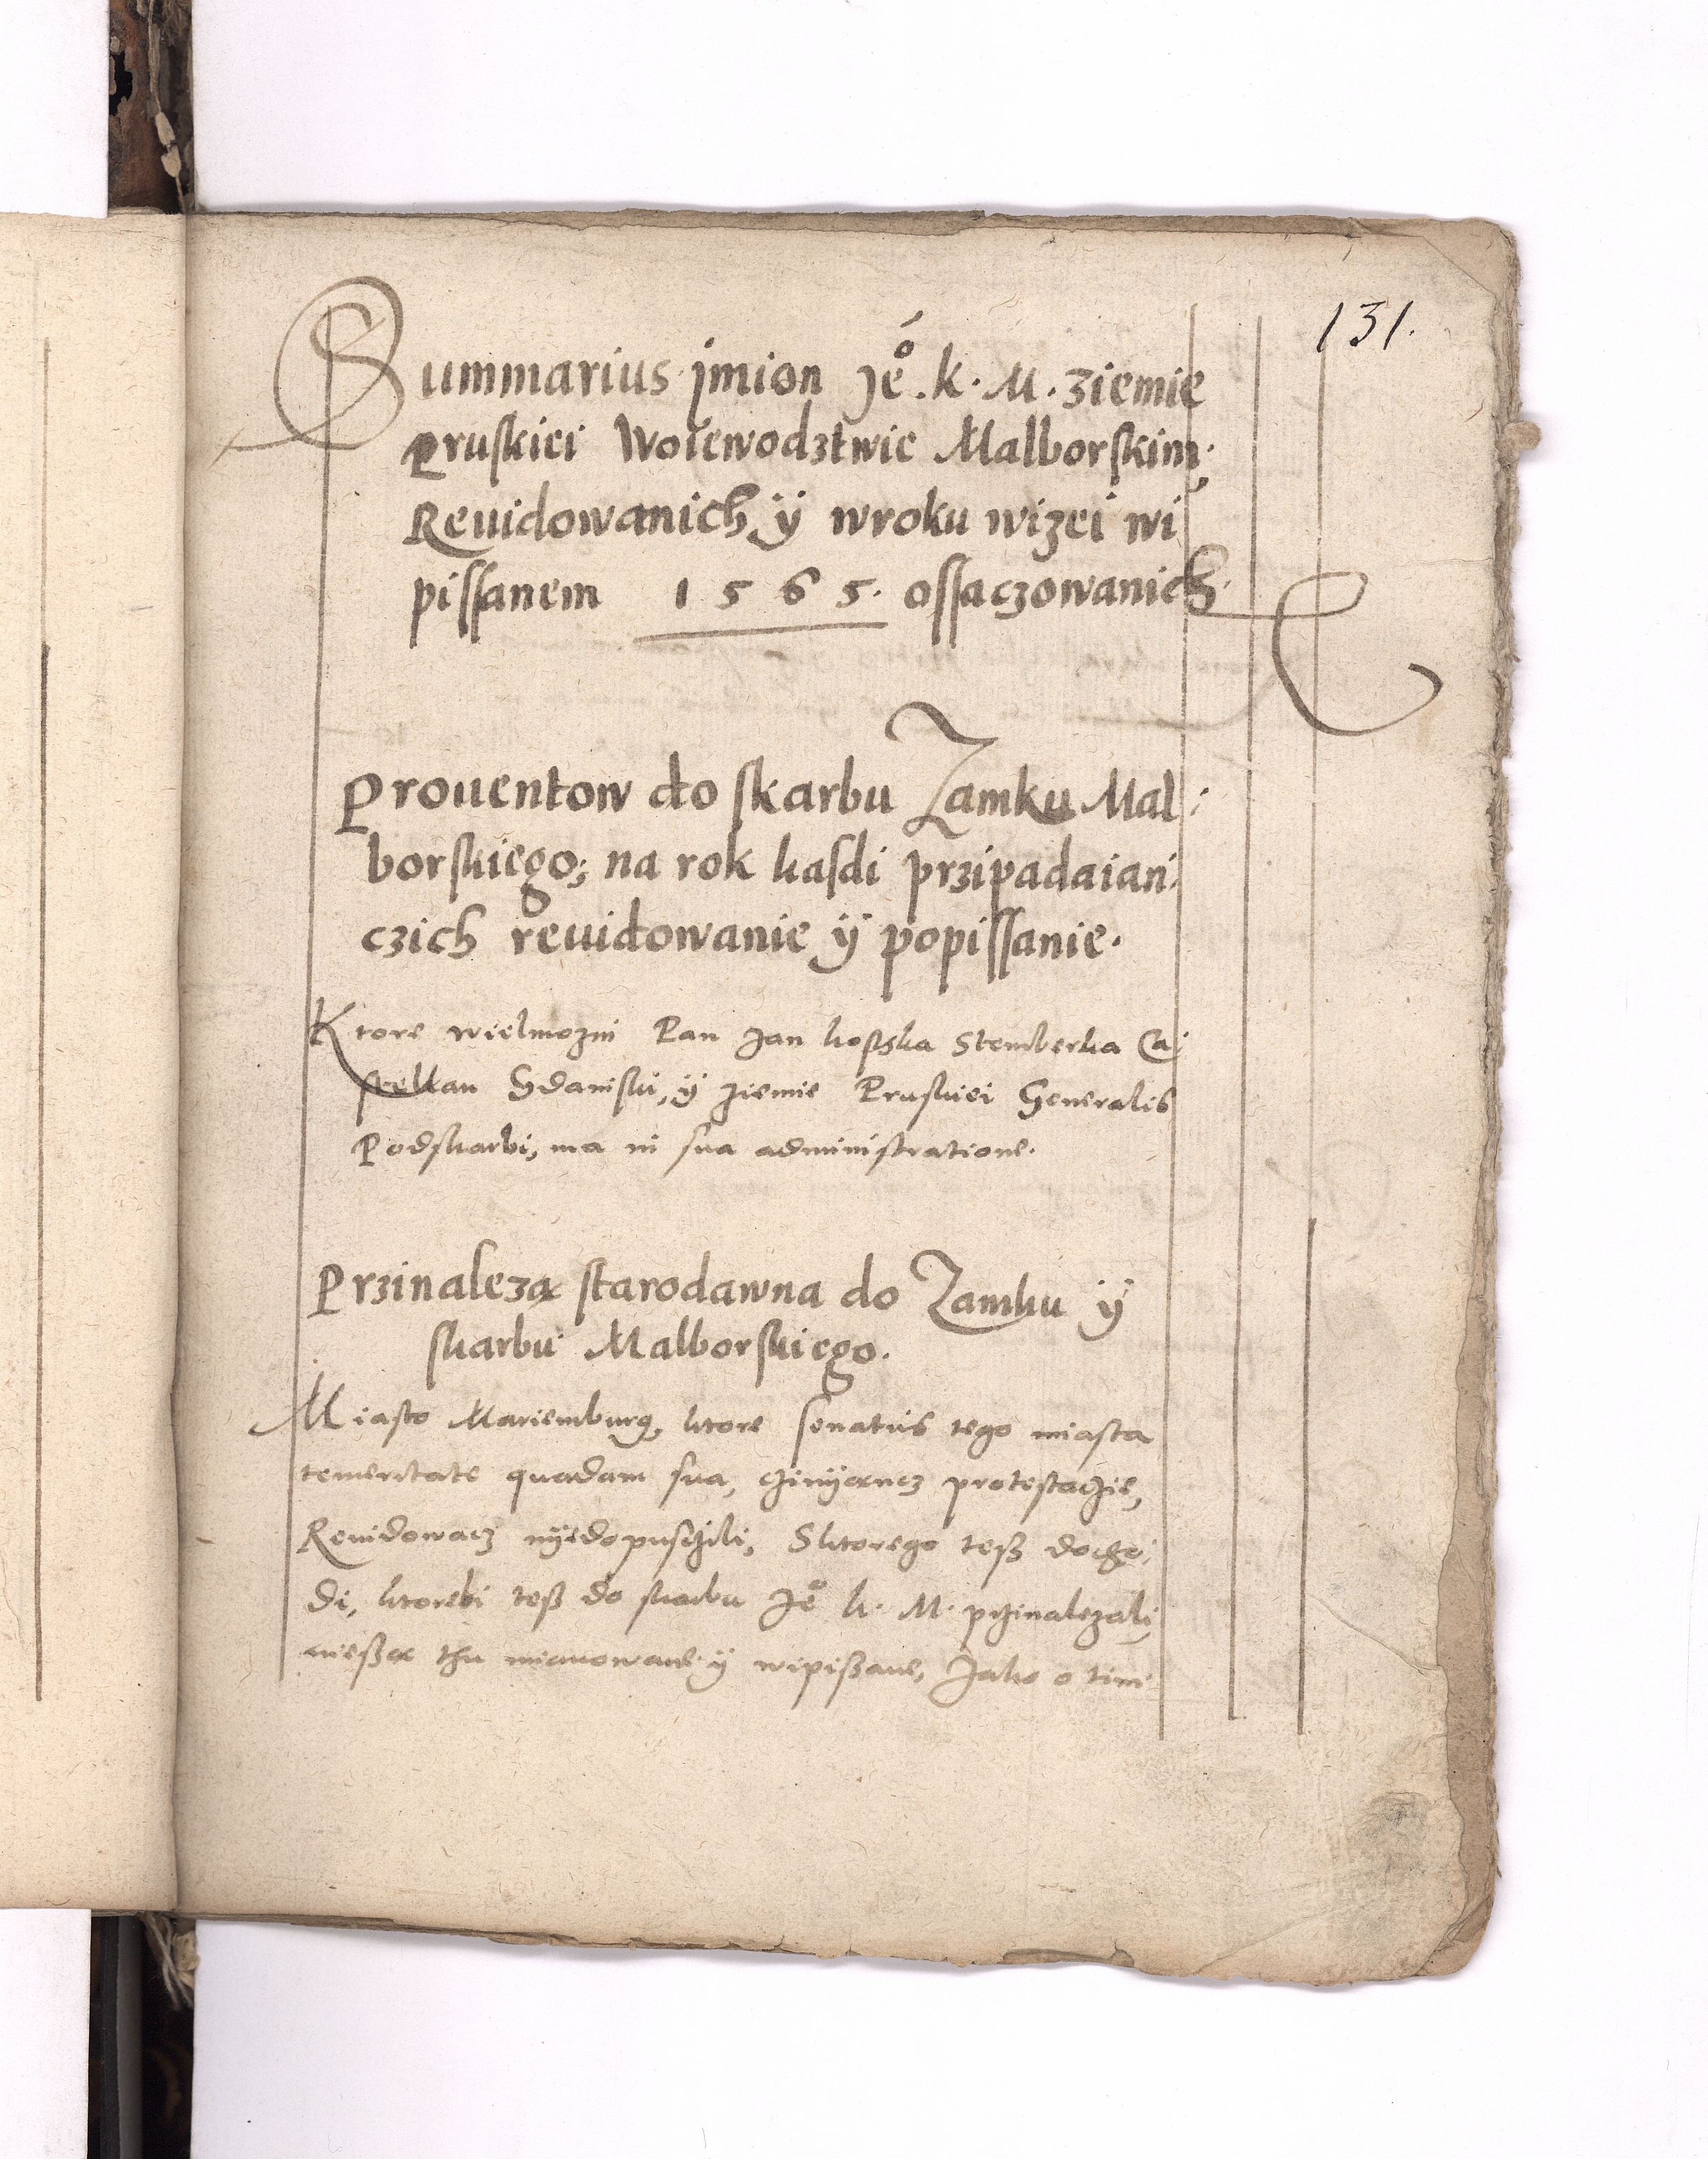 131.
Summarius jmion Je͛o. K. M. ziemie
Pruskiei Woiewodztwie Malborskim,
Reuidowanich, ÿ wroku wizei wi
pissanem 1565. ossaczowanich.
Prouentow do skarbu Zamku Mal:
borskiego; na rok kasdi przipadaian:
czich reuidowanie ÿ popissanie.
Ktore wielmozni Pan Jan kostka Stemberka Ca:
stellan Gdaniski, ÿ ziemie Pruskiei Generalis
Podskarbi, ma in sua administratione.
Przinalezą starodawna do Zamku ÿ
skarbu Malborskiego.
Miasto Mariemburg, ktore senatus tego miasta
temeritate quadam sua, cziniąncz protestaczie,
Reuidowacz nÿedopusczili, Sktorego teß docho:
di, ktorebi teß do skarbu Je͛o K. M. przinalezali,
nießą thu mianowane ÿ wipißane, Jako o tim